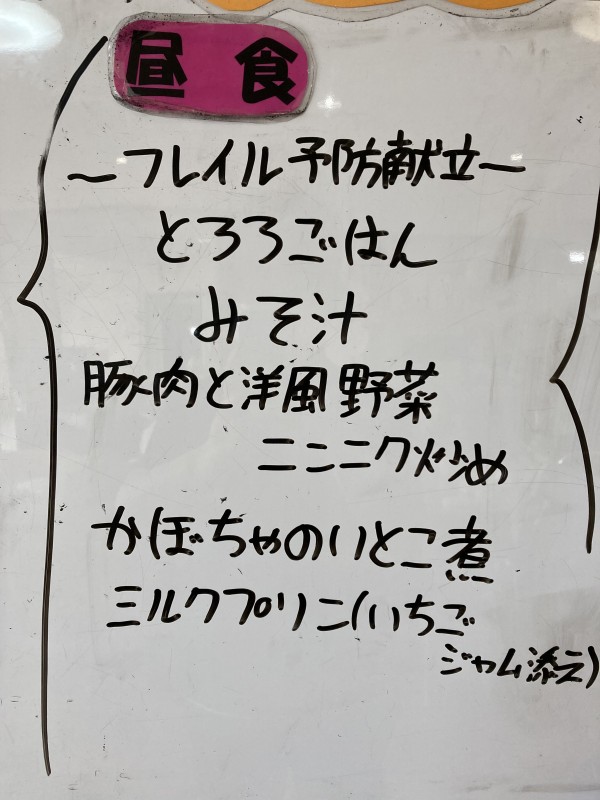 昼食
～フレイル予防献立～
とろろごはん
みそ汁
豚肉と洋風野菜
ニンニク炒め
かぼちゃのいとこ煮
ミルクプリン(いちご
ジャム添え)